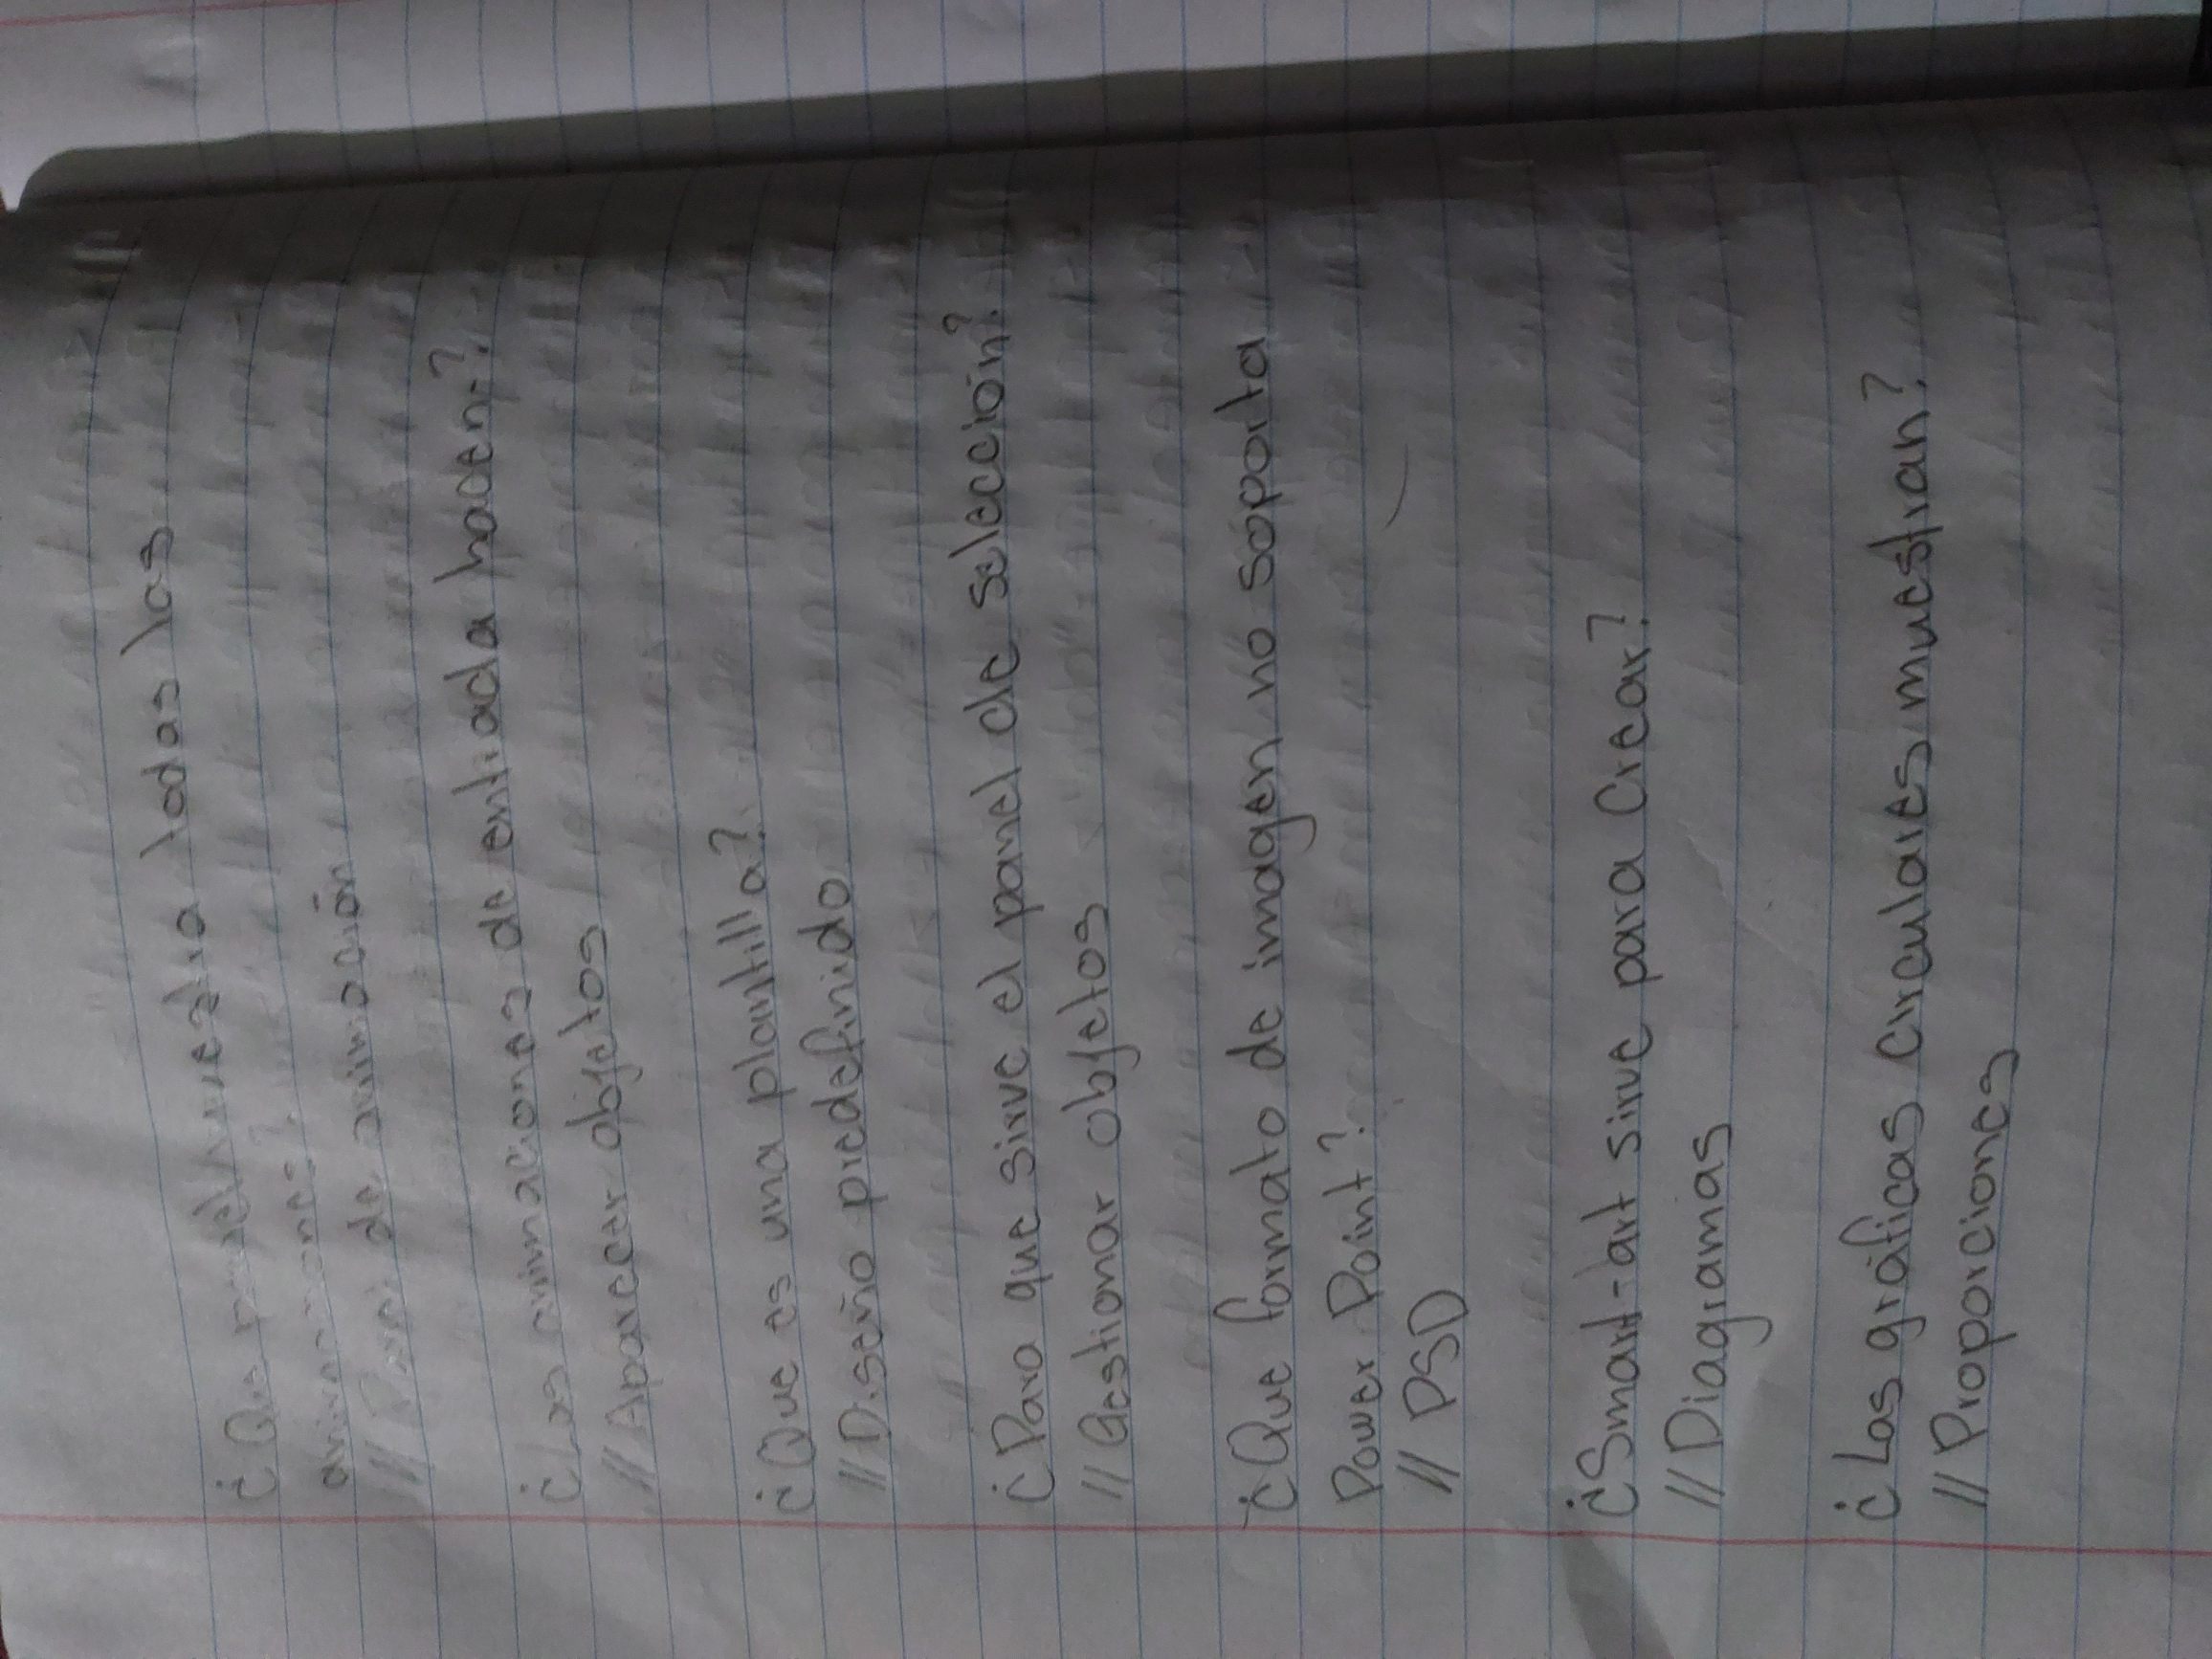 ¿Que panel muestra todas las
animaciones?
// Panel de animación
¿Las animaciones de entrada hacen?
// Aparecer objetos
¿Que es una plantilla?
// Diseño predefinido
¿Para que sirve el panel de selección?
// Gestionar objetos
¿Que formato de imagen no soporta
Power Point?
// PSD
¿Smart-art sirve para Crear?
// Diagramas
¿Las gráficas circulares muestran?
// Proporciones